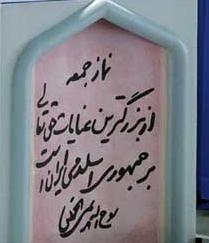 نماز جمعه
از بزرگترین عنایات حق تعالی
بر جمهوری اسلامی ایران است
روح الله الموسوی الخمینی